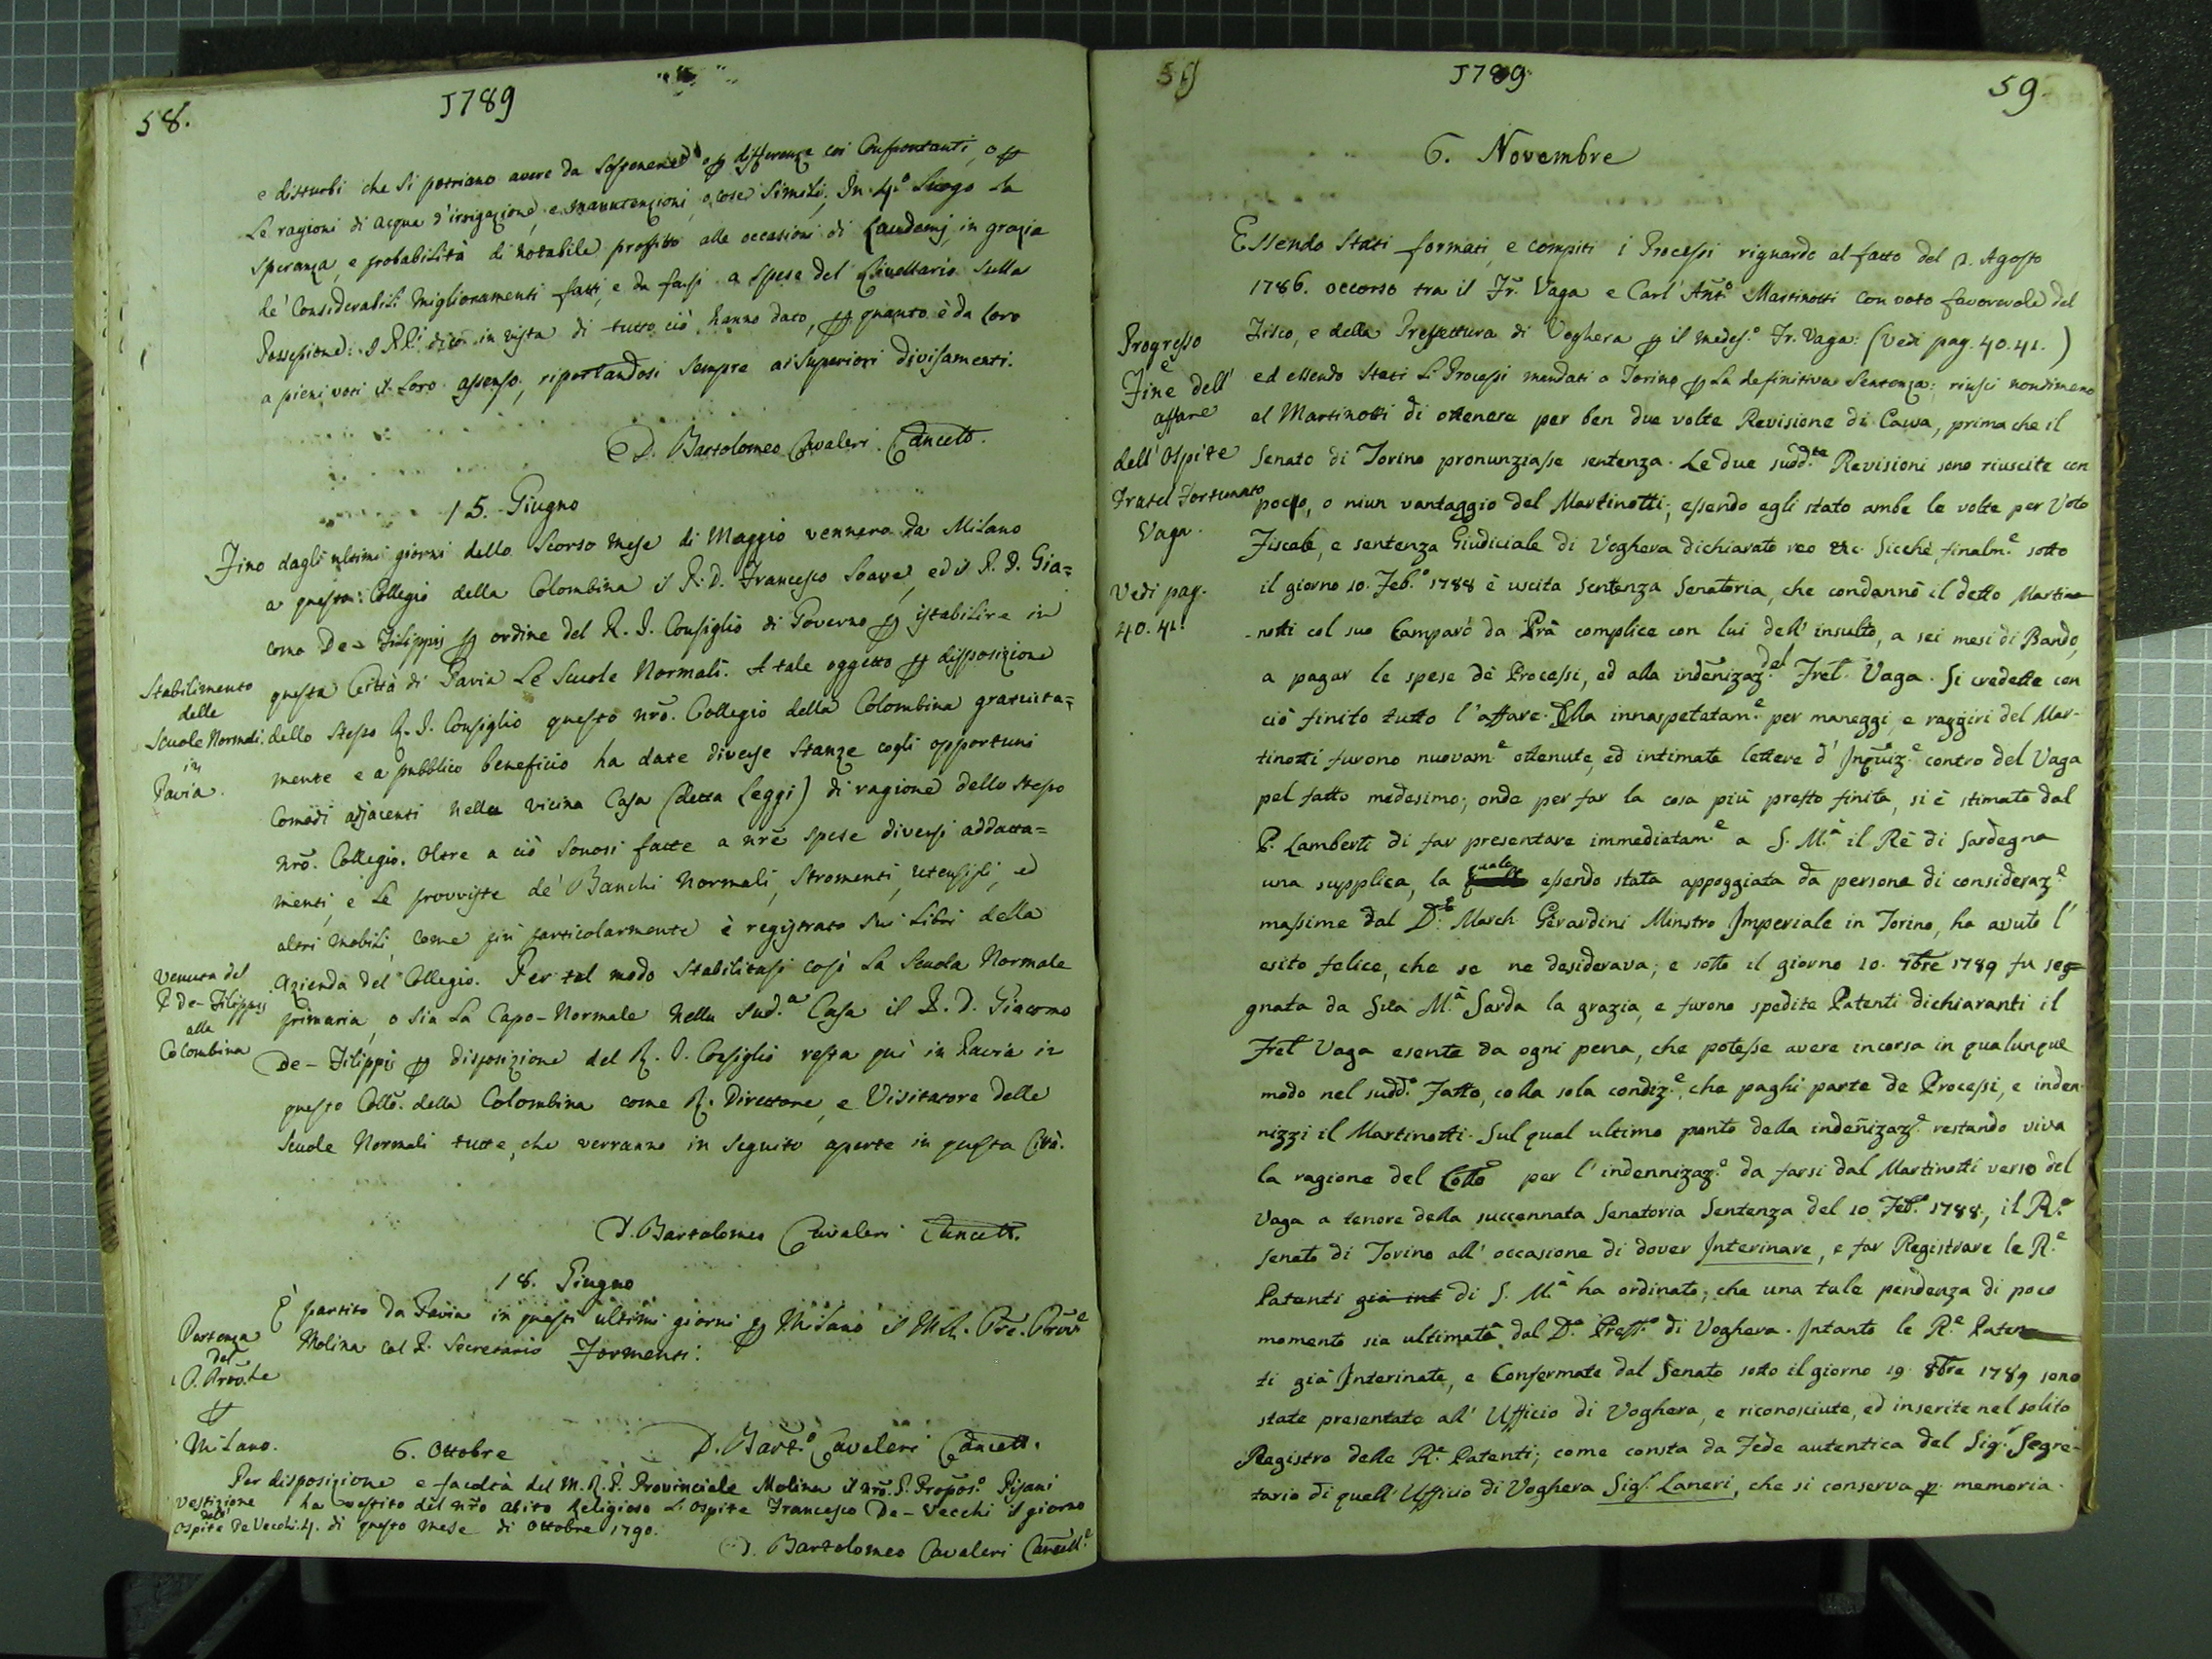 58.
1789
e disturbi che si potriano avere da sostenere ꝑ differenze coi Confrontanti, o ꝑ
Le ragioni di acqua d'irrigazione, e manutenzioni, o cose simili; In 4.º Luogo La
speranza, e probabilità di notabile profitto alle occasioni di Laudemj, in grazia
de' Considerabili Miglioramenti fatti, e da farsi a spese del Livellario sulla
Possessione: I RR.i dico in vista di tutto ciò hanno dato, ꝑ quanto è da loro
a pieni voti il Loro assenso, riportandosi sempre ai Superiori divisamenti.
D. Bartolomeo Cavaleri Cancell.
15. Giugno
Fino dagli ultimi giorni dello Scorso Mese di Maggio vennero da Milano
a questo Collegio della Colombina il P. D. Francesco Soave, ed il P. D. Gia=
como De-Filippis ꝑ ordine del R. I. Consiglio di Governo ꝑ istabilire in
Stabilimento
delle
Scuole Normali
in
Pavia.
questa Città di Pavia Le Scuole Normali. A tale oggetto ꝑ disposizione
dello Stesso R. I. Consiglio questo nrõ. Collegio della Colombina gratuita=
mente e a pubblico beneficio ha date diverse Stanze cogli opportuni
Comodi adjacenti nella vicina Casa (detta Leggi) di ragione dello stesso
nrõ. Collegio. Oltre a ciò sonosi fatte a nrẽ spese diversi addatta=
menti, e Le provviste de' Banchi Normali, Stromenti, utensigli, ed
altri mobili, come più particolarmente è registrato sui Libri della
Azienda del Collegio. Per tal modo Stabilitasi così La Scuola Normale
Venuta del
P. De-Filippis
alla
Colombina
primaria, o sia La Capo-Normale nella Sud.a Casa il P. D. Giacomo
De-Filippis ꝑ disposizione del R. I. Consiglio resta quì in Pavia in
questo Collõ. della Colombina come R. Direttore, e Visitatore delle
Scuole Normali tutte, che verranno in seguito aperte in questa Città.
D. Bartolomeo Cavaleri Cancell.
18. Giugno
Partenza
del
P. Prov.le
ꝑ
Milano.
È partito da Pavia in questi ultimi giorni ꝑ Milano il M. R. Prẽ. Prov.e
Molina col P. Secretario Formenti.
D. Bart.º Cavaleri Cancell.
6. Ottobre
Per disposizione e facoltà del M. R. P. Provinciale Molina il nrõ. P. Propos.º Pisani
Vestizione
dell'
Ospite De Vecchi.
ha vestito del nrõ abito Religioso L'Ospite Francesco De-Vecchi il giorno
4. di questo Mese di Ottobre 1790.
D. Bartolomeo Cavaleri Cancell.e
59
1789
59.
6. Novembre
Essendo stati formati, e compiti i Processi riguardo al fatto del 2. Agosto
1786. occorso tra il Fr. Vaga e Carl'Ant.º Martinotti con voto favorevole del
Progresso
e
Fine dell'
affare
dell'Ospite
Fratel Fortunato
Vaga.
Vedi pag.
40. 41.
Fisco, e della Prefettura di Voghera ꝑ il medes.º Fr. Vaga: (Vedi pag. 40. 41.)
ed essendo stati li Processi mandati a Torino ꝑ La definitiva Sentenza; riuscì nondimeno
al Martinotti di ottenere per ben due volte Revisione di Causa, prima che il
Senato di Torino pronunziasse sentenza. Le due sudd.te Revisioni sono riuscite con
poco, o niun vantaggio del Martinotti; essendo egli stato ambe le volte per Voto
Fiscale, e sentenza Giudiciale di Voghera dichiarato reo &c. Sicchè finalm.e sotto
il giorno 10. Feb.º 1788 è uscita Sentenza Senatoria, che condannò il detto Marti
-notti col suo Camparo da Prà complice con lui dell'insulto, a sei mesi di Bando,
a pagar le spese de' Processi, ed alla indenizaz.e del Fret. Vaga. Si credette con
ciò finito tutto l'affare. Ma innaspetatam.e per maneggi, e raggiri del Mar-
tinotti furono nuovam.e ottenute, ed intimate lettere d'Inquiz.e contro del Vaga
pel fatto medesimo; onde per far la cosa più presto finita, si è stimato dal
P. Lamberti di far presentare immediatam.e a S. M.à il Rè di Sardegna
una supplica, la quale essendo stata appoggiata da persone di consideraz.e
massime dal D. March Gerardini Minstro Imperiale in Torino, ha avuto l'
esito felice, che se ne desiderava; e sotto il giorno 10. 7bre 1789 fu seg=
gnata da Sua M.à Sarda la grazia, e furono spedite Patenti dichiaranti il
Fret Vaga esente da ogni pena, che potesse avere incorsa in qualunque
modo nel sudd.º Fatto, colla sola condiz.e, che paghi parte de Processi, e inden
nizzi il Martinotti. Sul qual ultimo punto della indenizaz.e restando viva
la ragione del Collº per l'indennizaz.e da farsi dal Martinotti verso del
Vaga a tenore della succennata Senatoria Sentenza del 10 Feb.º 1788, il R.º
Senato di Torino all'occasione di dover Interinare, e far Registrare le R.e
Patenti già int di S. M.à ha ordinato, che una tale pendenza di poco
momento sia ultimata dal D.º Preff.º di Voghera. Intanto le R.e Paten
ti già Interinate, e Confermate dal Senato sotto il giorno 19 8bre 1789 sono
state presentate all'Ufficio di Voghera, e riconosciute, ed inserite nel solito
Registro delle R.e Patenti; come consta da Fede autentica del Sig.r Segre-
tario di quell'Ufficio di Voghera Sig.r Laneri, che si conserva ꝑ memoria.